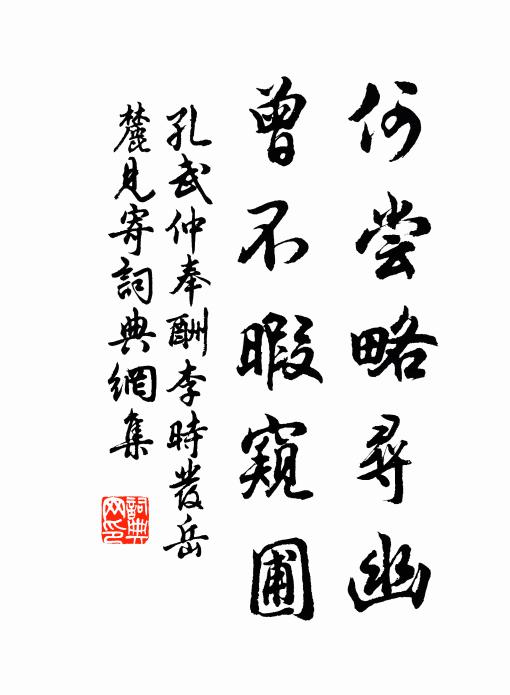 何尝略尋幽
曾不暇窺圃
孔武仲奉酬李時發岳
麓見寄詞典網集
詞典
网印